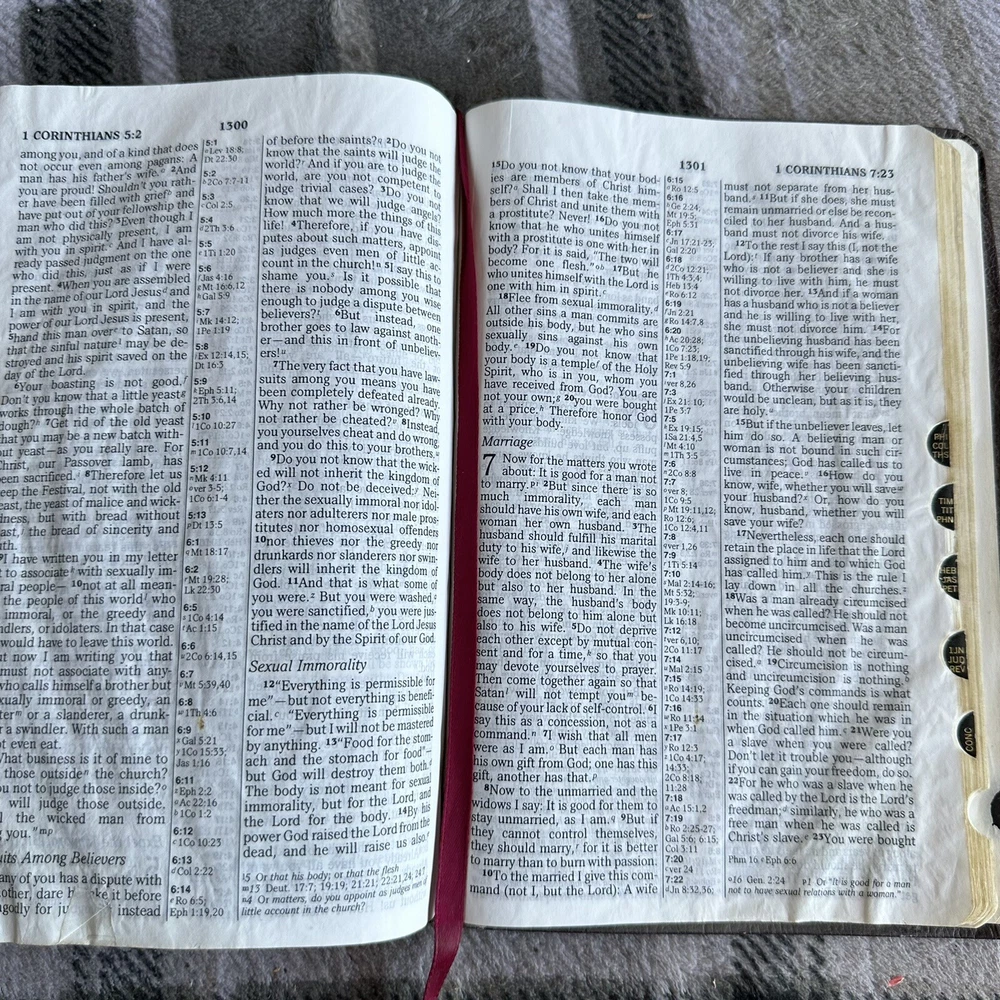 1 CORINTHIANS 5:2
1300
among you, and of a kind that does
not occur even among pagans: A
man has his father's wife. ²And
you are proud! Shouldn't you rath-
er have been filled with grief and
have put out of your fellowship the
man who did this? ³Even though I
am not physically present, I am
with you in spirit. And I have al-
ready passed judgment on the one
who did this, just as if I were
present. ⁴When you are assembled
in the name of our Lord Jesus and
I am with you in spirit, and the
power of our Lord Jesus is present,
⁵hand this man over to Satan, so
that the sinful nature may be de-
stroyed and his spirit saved on the
day of the Lord.
⁶Your boasting is not good.
Don't you know that a little yeast
works through the whole batch of
dough? ⁷Get rid of the old yeast
that you may be a new batch with-
out yeast—as you really are. For
Christ, our Passover lamb, has
been sacrificed. ⁸Therefore let us
keep the Festival, not with the old
yeast, the yeast of malice and wick-
dness, but with bread without
east, the bread of sincerity and
uth.
I have written you in my letter
t to associate with sexually im-
ral people— ¹⁰not at all mean-
the people of this world who
immoral, or the greedy and
ndlers, or idolaters. In that case
would have to leave this world.
ut now I am writing you that
must not associate with any-
who calls himself a brother but
xually immoral or greedy, an
ter or a slanderer, a drunk-
r a swindler. With such a man
ot even eat.
What business is it of mine to
those outside the church?
ou not to judge those inside?
will judge those outside.
l the wicked man from
g you."
uits Among Believers
any of you has a dispute with
other, dare h ke it before
ngodly for ju instead
5:1
Lev 18:8;
Dt 22:30
5:2
2Co 7:7-11
5:3
Col 2:5
5:4
2Th 3:6
5:5
1Ti 1:20
5:6
Jas 4:16
Mt 16:6,12
Gal 5:9
5:7
Mk 14:12;
1Pe 1:19
5:8
Ex 12:14,15;
Dt 16:3
5:9
Eph 5:11;
2Th 3:6,14
5:10
1Co 10:27
5:11
1Co 10:7,14
5:12
Mk 4:11
ver 3-5;
1Co 6:1-4
5:13
Dt 13:5
6:1
Mt 18:17
6:2
Mt 19:28;
Lk 22:30
6:5
1Co 4:14
Ac 1:15
6:6
2Co 6:14,15
6:7
Mt 5:39,40
6:8
1Th 4:6
6:9
Gal 5:21
1Co 15:33;
Jas 1:16
6:11
Eph 2:2
Ac 22:16
1Co 1:2
6:12
1Co 10:23
6:13
Col 2:22
6:14
Ro 6:5;
Eph 1:19,20
of before the saints? ²Do you not
know that the saints will judge the
world? And if you are to judge the
world, are you not competent to
judge trivial cases? ³Do you not
know that we will judge angels?
How much more the things of this
life! ⁴Therefore, if you have dis-
putes about such matters, appoint
as judges even men of little ac-
count in the church! ⁵I say this to
shame you. Is it possible that
there is nobody among you wise
enough to judge a dispute between
believers? ⁶But instead, one
brother goes to law against anoth-
er—and this in front of unbeliev-
ers!
⁷The very fact that you have law-
suits among you means you have
been completely defeated already.
Why not rather be wronged? Why
not rather be cheated? ⁸Instead,
you yourselves cheat and do wrong,
and you do this to your brothers.
⁹Do you not know that the wick-
ed will not inherit the kingdom of
God? Do not be deceived: Nei-
ther the sexually immoral nor idol-
aters nor adulterers nor male pros-
titutes nor homosexual offenders
¹⁰nor thieves nor the greedy nor
drunkards nor slanderers nor swin-
dlers will inherit the kingdom of
God. ¹¹And that is what some of
you were. But you were washed,
you were sanctified, you were jus-
tified in the name of the Lord Jesus
Christ and by the Spirit of our God.
Sexual Immorality
¹²"Everything is permissible for
me"—but not everything is benefi-
cial. "Everything is permissible
for me"—but I will not be mastered
by anything. ¹³"Food for the stom-
ach and the stomach for food"—
but God will destroy them both.
The body is not meant for sexual
immorality, but for the Lord, and
the Lord for the body. ¹⁴By his
power God raised the Lord from the
dead, and he will raise us also.
5 Or that his body; or that the flesh
13 Deut. 17:7; 19:19; 21:21; 22:21,24; 24:7
4 Or matters, do you appoint as judges men of
little account in the church?
1301
1 CORINTHIANS 7:23
¹⁵Do you not know that your bod-
ies are members of Christ him-
self? Shall I then take the mem-
bers of Christ and unite them with
a prostitute? Never! ¹⁶Do you not
know that he who unites himself
with a prostitute is one with her in
body? For it is said, "The two will
become one flesh." ¹⁷But he
who unites himself with the Lord is
one with him in spirit.
¹⁸Flee from sexual immorality.
All other sins a man commits are
outside his body, but he who sins
sexually sins against his own
body. ¹⁹Do you not know that
your body is a temple of the Holy
Spirit, who is in you, whom you
have received from God? You are
not your own; ²⁰you were bought
at a price. Therefore honor God
with your body.
Marriage
7 Now for the matters you wrote
about: It is good for a man not
to marry. ²But since there is so
much immorality, each man
should have his own wife, and each
woman her own husband. ³The
husband should fulfill his marital
duty to his wife, and likewise the
wife to her husband. ⁴The wife's
body does not belong to her alone
but also to her husband. In the
same way, the husband's body
does not belong to him alone but
also to his wife. ⁵Do not deprive
each other except by mutual con-
sent and for a time, so that you
may devote yourselves to prayer.
Then come together again so that
Satan will not tempt you be-
cause of your lack of self-control. ⁶I
say this as a concession, not as a
command. ⁷I wish that all men
were as I am. But each man has
his own gift from God; one has this
gift, another has that.
⁸Now to the unmarried and the
widows I say: It is good for them to
stay unmarried, as I am. ⁹But if
they cannot control themselves,
they should marry, for it is better
to marry than to burn with passion.
¹⁰To the married I give this com-
mand (not I, but the Lord): A wife
6:15
Ro 12:5
6:16
Ge 2:24;
Mt 19:5;
Eph 5:31
6:17
Jn 17:21-23;
Gal 2:20
6:18
2Co 12:21;
1Th 4:3,4;
Heb 13:4
Ro 6:12
6:19
Jn 2:21
Ro 14:7,8
6:20
Ac 20:28;
1Co 7:23;
1Pe 1:18,19;
Rev 5:9
7:1
ver 8,26
7:3
Ex 21:10;
1Pe 3:7
7:5
Ex 19:15;
1Sa 21:4,5
Mt 4:10
1Th 3:5
7:6
2Co 8:8
7:7
ver 8;
1Co 9:5
Mt 19:11,12;
Ro 12:6;
1Co 12:4,11
7:8
ver 1,26
7:9
1Ti 5:14
7:10
Mal 2:14-16;
Mt 5:32;
19:3-9;
Mk 10:11;
Lk 16:18
7:12
ver 6,10;
2Co 11:17
7:14
Mal 2:15
7:15
Ro 14:19;
1Co 14:33
7:16
Ro 11:14
1Pe 3:1
7:17
Ro 12:3
1Co 4:17;
14:33;
2Co 8:18;
11:28
7:18
Ac 15:1,2
7:19
Ro 2:25-27;
Gal 5:6; 6:15;
Col 3:11
7:20
ver 24
7:22
Jn 8:32,36;
must not separate from her hus-
band. ¹¹But if she does, she must
remain unmarried or else be recon-
ciled to her husband. And a hus-
band must not divorce his wife.
¹²To the rest I say this (I, not the
Lord): If any brother has a wife
who is not a believer and she is
willing to live with him, he must
not divorce her. ¹³And if a woman
has a husband who is not a believer
and he is willing to live with her,
she must not divorce him. ¹⁴For
the unbelieving husband has been
sanctified through his wife, and the
unbelieving wife has been sancti-
fied through her believing hus-
band. Otherwise your children
would be unclean, but as it is, they
are holy.
¹⁵But if the unbeliever leaves, let
him do so. A believing man or
woman is not bound in such cir-
cumstances; God has called us to
live in peace. ¹⁶How do you
know, wife, whether you will save
your husband? Or, how do you
know, husband, whether you will
save your wife?
¹⁷Nevertheless, each one should
retain the place in life that the Lord
assigned to him and to which God
has called him. This is the rule I
lay down in all the churches.
¹⁸Was a man already circumcised
when he was called? He should not
become uncircumcised. Was a man
uncircumcised when he was
called? He should not be circum-
cised. ¹⁹Circumcision is nothing
and uncircumcision is nothing.
Keeping God's commands is what
counts. ²⁰Each one should remain
in the situation which he was in
when God called him. ²¹Were you
a slave when you were called?
Don't let it trouble you—although
if you can gain your freedom, do so.
²²For he who was a slave when he
was called by the Lord is the Lord's
freedman; similarly, he who was a
free man when he was called is
Christ's slave. ²³You were bought
Phm 16 Eph 6:6
16 Gen. 2:24 1 Or "It is good for a man
not to have sexual relations with a woman."
PHI
COL
THS
TIM
TIT
PHN
HEB
JAS
PET
1JN
JUD
REV
CONC